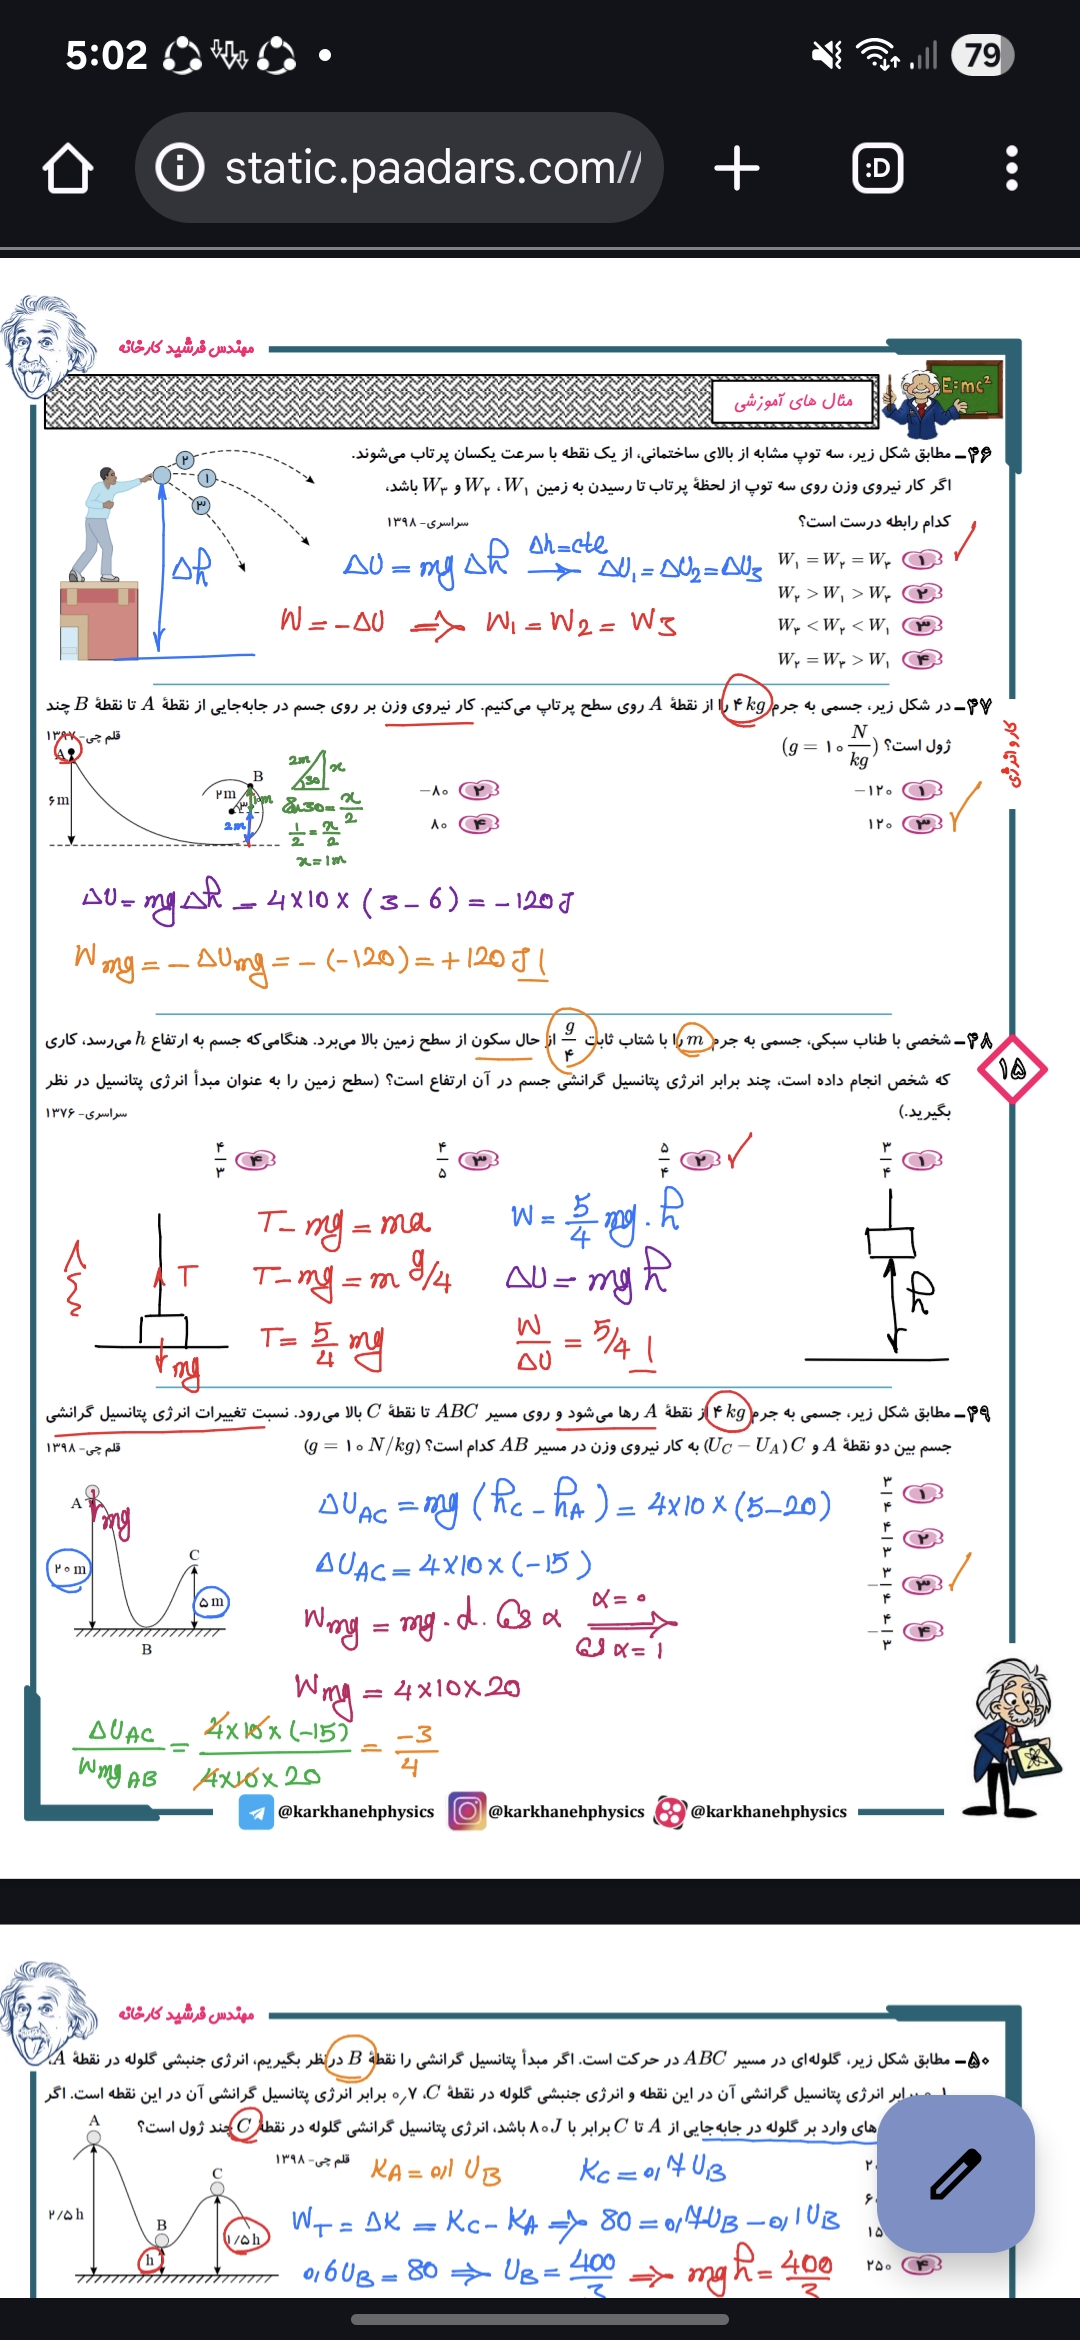 5:02
79
static.paadars.com//
:D
مهندس فرشید کارخانه
E=mc²
مثال های آموزشی
۴۶– مطابق شکل زیر، سه توپ مشابه از بالای ساختمانی، از یک نقطه با سرعت یکسان پرتاب می‌شوند.
اگر کار نیروی وزن روی سه توپ از لحظهٔ پرتاب تا رسیدن به زمین W₁، W₂ و W₃ باشد،
کدام رابطه درست است؟
سراسری- ۱۳۹۸
۲
۱
۳
Δh
ΔU = mgΔh Δh=cte → ΔU₁=ΔU₂=ΔU₃
W = -ΔU ⇒ W₁ = W₂ = W₃
۱ W₁ = W₂ = W₃
۲ W₂ > W₁ > W₃
۳ W₃ < W₂ < W₁
۴ W₂ = W₃ > W₁
۴۷– در شکل زیر، جسمی به جرم ۴ kg را از نقطهٔ A روی سطح پرتاپ می‌کنیم. کار نیروی وزن بر روی جسم در جابه‌جایی از نقطهٔ A تا نقطهٔ B چند
ژول است؟ (g = ۱۰ N/kg)
قلم چی- ۱۳۹۷
۱ -۱۲۰
۲ -۸۰
۳ ۱۲۰
۴ ۸۰
A
B
۶ m
۲m
2m
1m
2m
30
x
Sin30 = x/2
1/2 = x/2
x = 1m
ΔU = mgΔh = 4×10×(3-6) = -120 J
Wmg = -ΔUmg = -(-120) = +120 J
کار و انرژی
۴۸– شخصی با طناب سبکی، جسمی به جرم m را با شتاب ثابت g/۴ از حال سکون از سطح زمین بالا می‌برد. هنگامی‌که جسم به ارتفاع h می‌رسد، کاری
که شخص انجام داده است، چند برابر انرژی پتانسیل گرانشی جسم در آن ارتفاع است؟ (سطح زمین را به عنوان مبدأ انرژی پتانسیل در نظر
بگیرید.)
سراسری- ۱۳۷۶
۱۵
۱ ۳/۴
۲ ۵/۴
۳ ۴/۵
۴ ۴/۳
T
mg
h
T - mg = ma
T - mg = m g/4
T = 5/4 mg
W = 5/4 mg.h
ΔU = mgh
W/ΔU = 5/4
۴۹– مطابق شکل زیر، جسمی به جرم ۴ kg از نقطهٔ A رها می‌شود و روی مسیر ABC تا نقطهٔ C بالا می‌رود. نسبت تغییرات انرژی پتانسیل گرانشی
جسم بین دو نقطهٔ A و C (U_C – U_A) به کار نیروی وزن در مسیر AB کدام است؟ (g = ۱۰ N/kg)
قلم چی- ۱۳۹۸
۱ ۳/۴
۲ ۴/۳
۳ -۳/۴
۴ -۴/۳
A
mg
C
۲۰ m
۵ m
B
ΔU_AC = mg(h_C - h_A) = 4×10×(5-20)
ΔU_AC = 4×10×(-15)
Wmg = mg.d.Cos α α=0 ⇒ Cos α = 1
Wmg = 4×10×20
ΔU_AC/Wmg AB = 4×10×(-15)/4×10×20 = -3/4
@karkhanehphysics
@karkhanehphysics
@karkhanehphysics
مهندس فرشید کارخانه
۵۰– مطابق شکل زیر، گلوله‌ای در مسیر ABC در حرکت است. اگر مبدأ پتانسیل گرانشی را نقطهٔ B در نظر بگیریم، انرژی جنبشی گلوله در نقطهٔ A،
برابر انرژی پتانسیل گرانشی آن در این نقطه و انرژی جنبشی گلوله در نقطهٔ C، ۰٫۷ برابر انرژی پتانسیل گرانشی آن در این نقطه است. اگر
های وارد بر گلوله در جابه‌جایی از A تا C برابر با ۸۰J باشد، انرژی پتانسیل گرانشی گلوله در نقطهٔ C چند ژول است؟
قلم چی- ۱۳۹۸
A
B
C
۲/۵h
h
۱/۵h
K_A = 0,1 U_B
K_C = 0,7 U_B
W_T = ΔK = K_C - K_A ⇒ 80 = 0,7U_B - 0,1U_B
0,6U_B = 80 ⇒ U_B = 400/3 ⇒ mgh = 400/3
۴ ۲۵۰